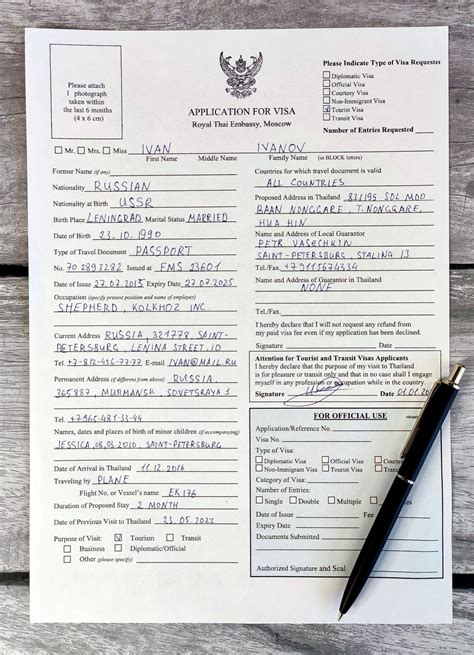 Please attach
1 photograph
taken within
the last 6 months
(4 x 6 cm)
APPLICATION FOR VISA
Royal Thai Embassy, Moscow
Please Indicate Type of Visa Requested
Diplomatic Visa
Official Visa
Courtesy Visa
Non-Immigrant Visa
V Tourist Visa
Transit Visa
Number of Entries Requested
Mr. Mrs. Miss IVAN IVANOV
First Name Middle Name Family Name (in BLOCK letters)
Former Name (if any)
Nationality RUSSIAN
Nationality at Birth USSR
Birth Place LENINGRAD Marital Status MARRIED
Date of Birth 23.10.1990
Type of Travel Document PASSPORT
No. 70 2893282 Issued at FMS 23601
Date of Issue 27.07.2015 Expiry Date 27.07.2025
Occupation (specify present position and name of employer)
SHEPHERD, KOLKHOZ INC.
Current Address RUSSIA, 321778, SAINT-
PETERSBURG, LENINA STREET, 10
Tel. +7-812-456-77-77 E-mail IVAN@MAIL.RU
Permanent Address (if different from above) RUSSIA,
365987, MURMANSK, SOVETSRAYA 1
Tel. +7-965-487-33-44
Names, dates and places of birth of minor children (if accompanying)
JESSICA, 08.03.2010, SAINT-PETERSBURG
Date of Arrival in Thailand 11.12.2016
Traveling by PLANE
Flight No. or Vessel's name EK 176
Duration of Proposed Stay 2 MONTH
Date of Previous Visit to Thailand 23.05.2022
Purpose of Visit: V Tourism Transit
Business Diplomatic/Official
Other (please specify)
Countries for which travel document is valid
ALL COUNTRIES
Proposed Address in Thailand 83/195 SOL MOO
BAAN NONGGARE, T.NONGGARE,
HUA HIN
Name and Address of Local Guarantor
PETR VASECHKIN
SAINT-PETERSBURG, STALINA 13
Tel./Fax. +79115674334
Name and Address of Guarantor in Thailand
NONE
Tel./Fax.
I hereby declare that I will not request any refund from my
paid visa fee even if my application has been declined.
Signature Date
Attention for Tourist and Transit Visas Applicants
I hereby declare that the purpose of my visit to Thailand
is for pleasure or transit only and that in no case shall I engage
myself in any profession or occupation while in the country.
Signature Date
FOR OFFICIAL USE
Application/Reference No.
Visa No.
Type of Visa:
Diplomatic Visa Official Visa
Non-Immigrant Visa Tourist Visa
Category of Visa:
Number of Entries:
Single Double Multiple
Date of Issue
Expiry Date
Documents Submitted
Authorized Signature and Seal